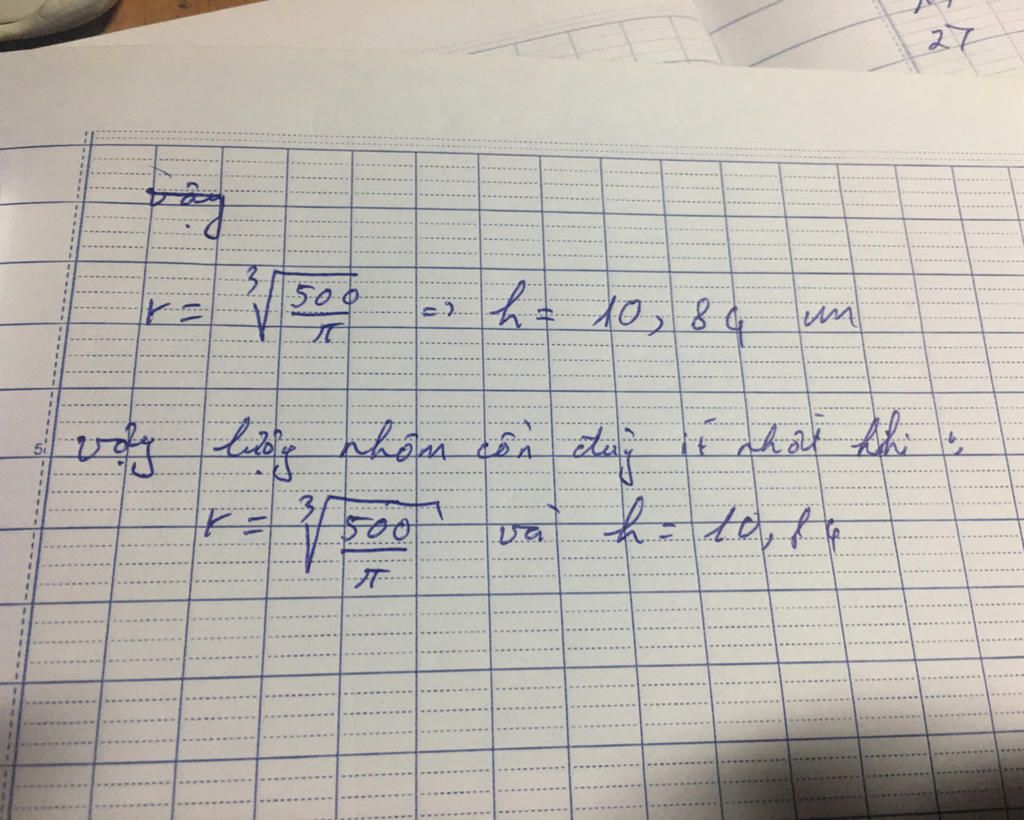 27
vậy
r = ∛(500/π) => h = 10,84 cm
5
vậy lượng nhôm cần dùng ít nhất khi:
r = ∛(500/π) và h = 10,84